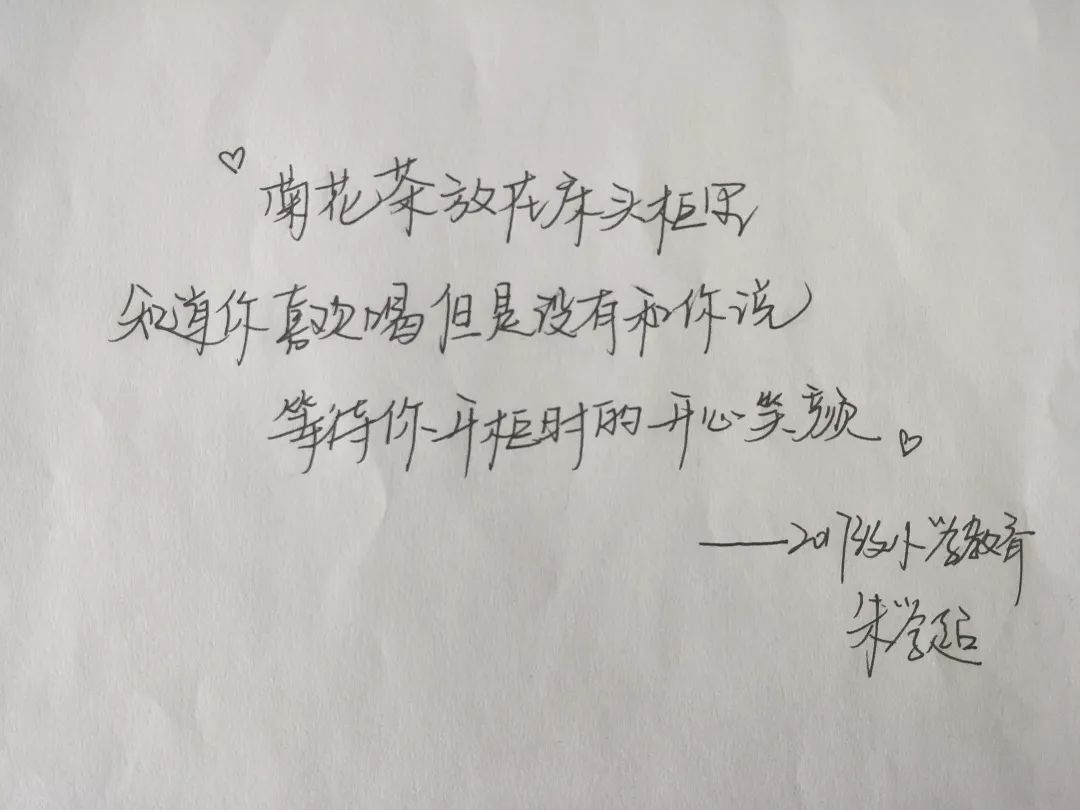 ♡ 菊花茶放在床头柜里
知道你喜欢喝但是没有和你说
等待你开柜时的开心笑颜。♡
——2017级小学教育
朱学超